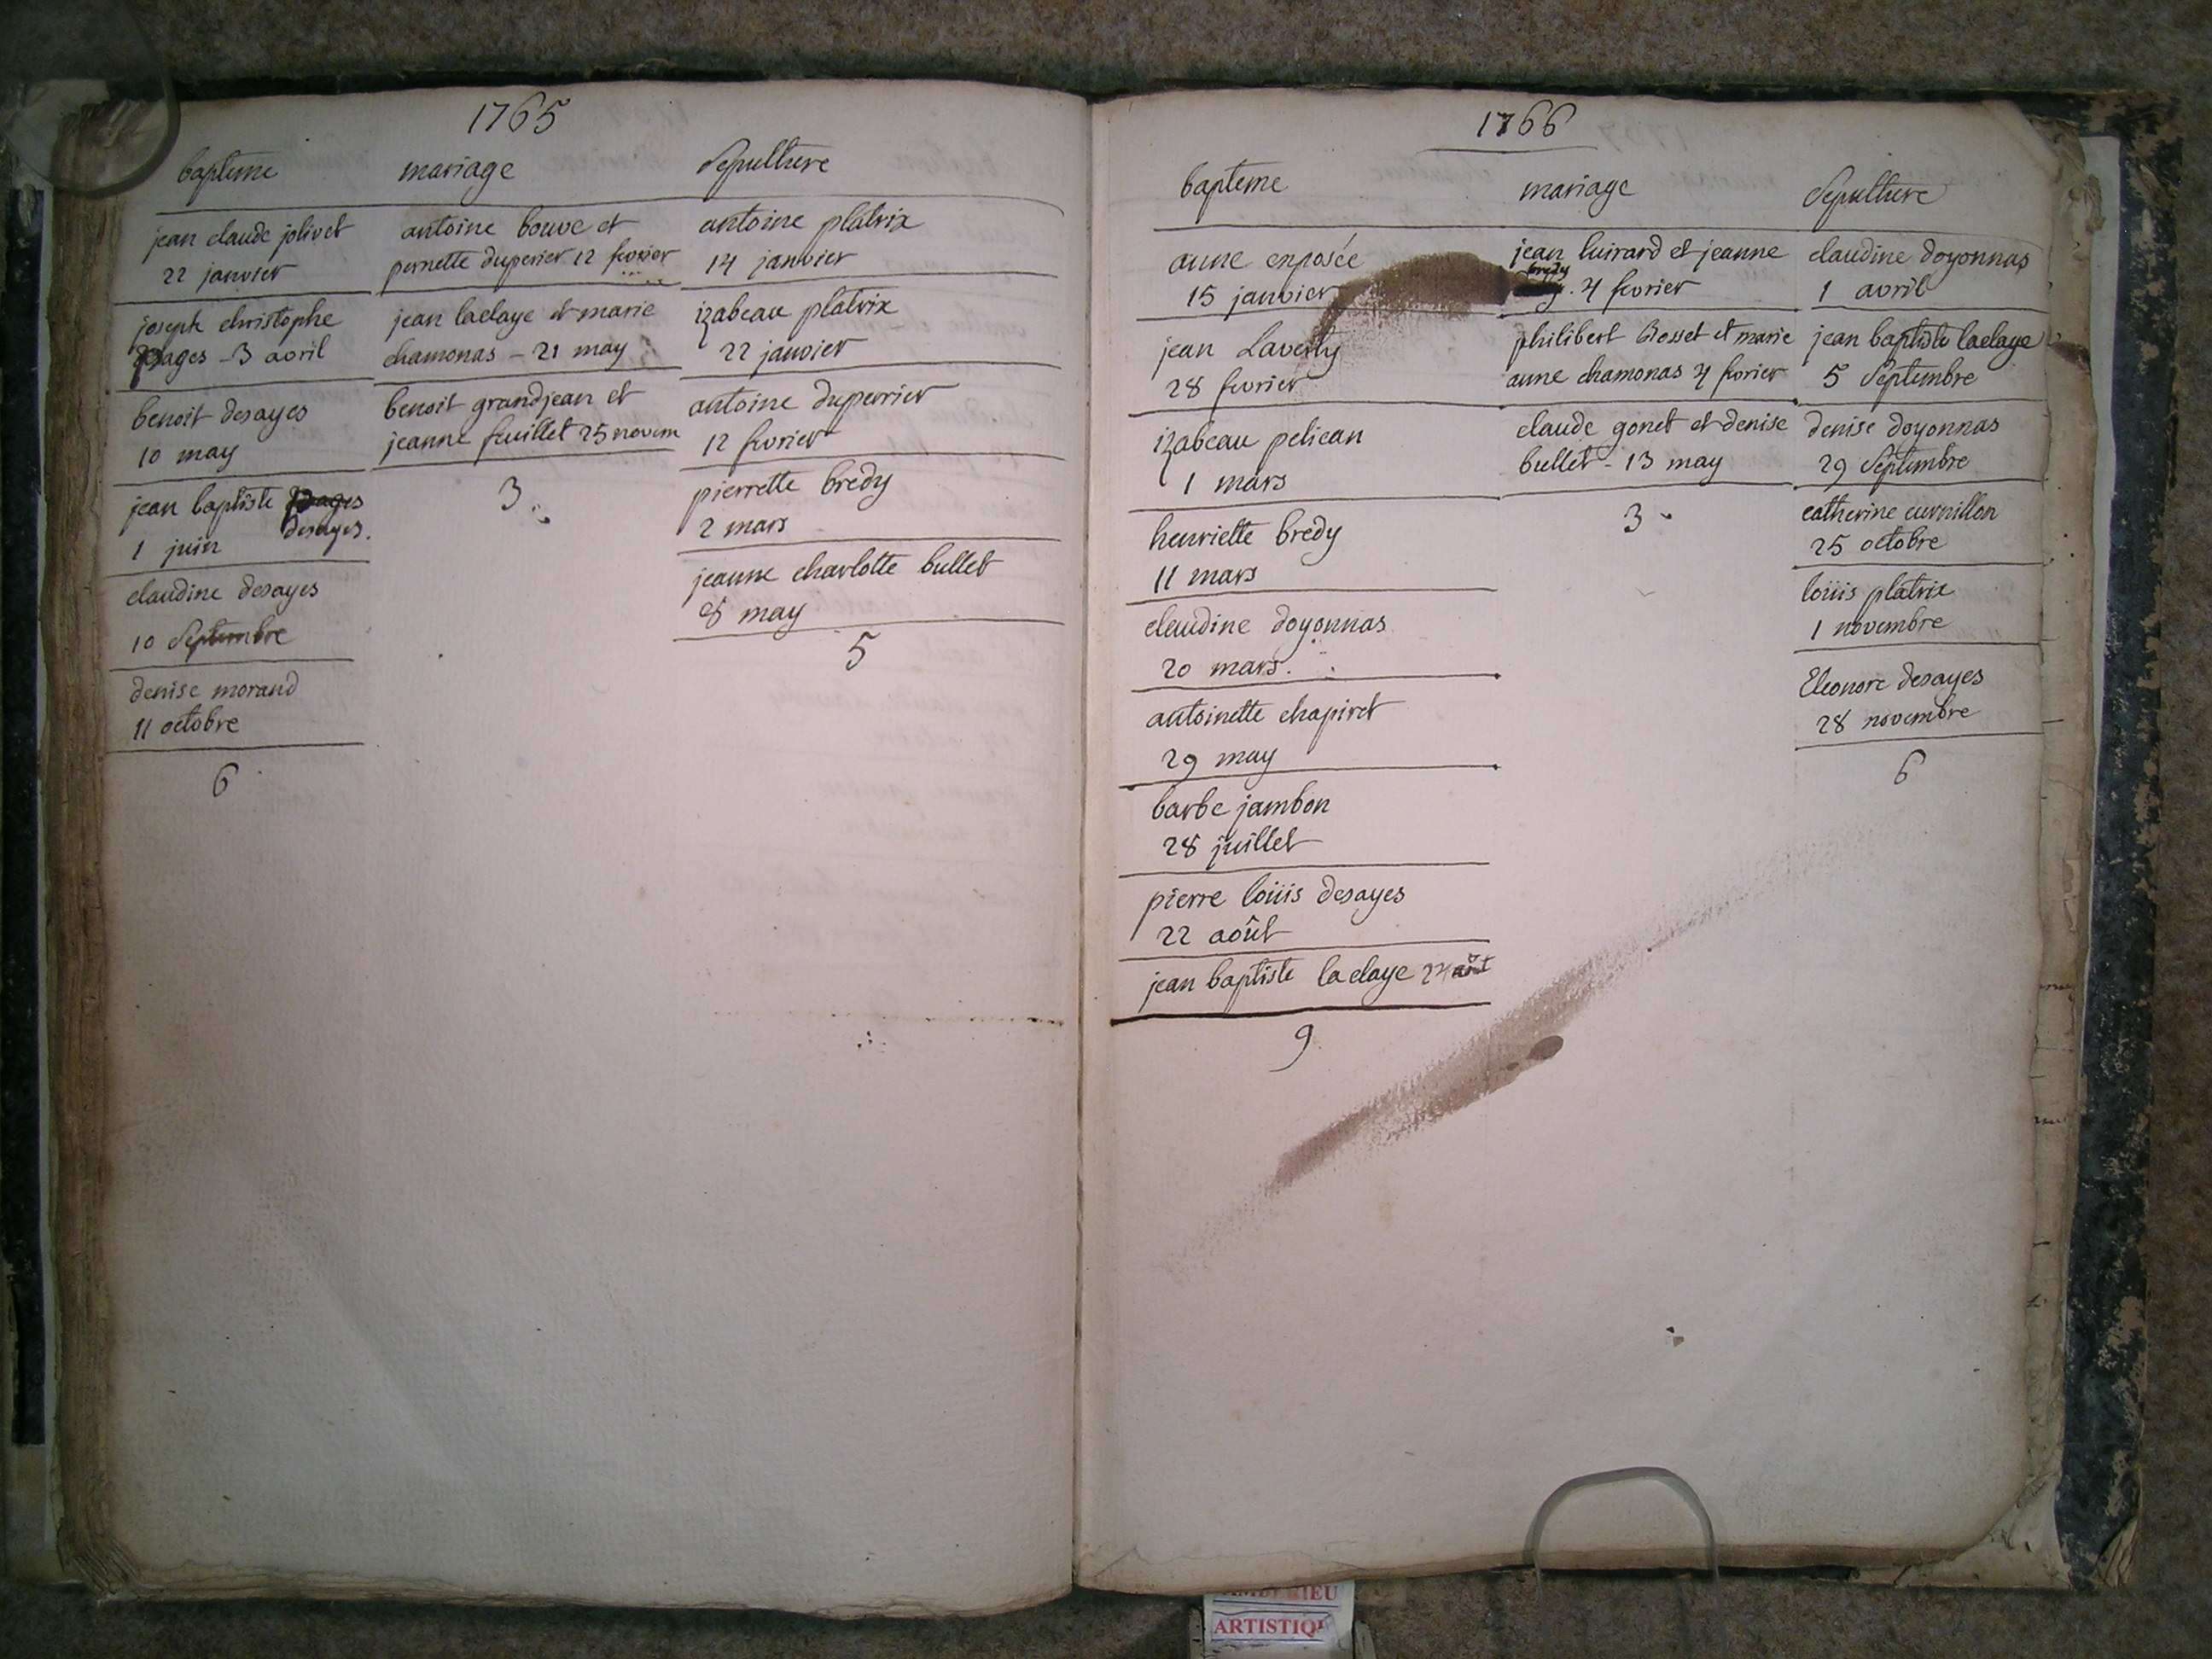 1765
bapteme
jean claude jolivet
22 janvier
joseph christophe
pages - 3 avril
benoit desayes
10 may
jean baptiste pages
desayes.
1 juin
claudine desayes
10 Septembre
denise morand
11 octobre
6
mariage
antoine bouve et
pernette duperier 12 fevrier
jean laclaye et marie
chamonas - 21 may
benoit grandjean et
jeanne feuillet 25 novem
3
Sepulture
antoine platrix
14 janvier
izabeau platrix
22 janvier
antoine duperrier
12 fevrier
pierrette bredy
2 mars
jeanne charlotte bullet
8 may
5
1766
bapteme
anne exposée
15 janvier
jean
28 fevrier
izabeau pelican
1 mars
henriette bredy
11 mars
claudine doyonnas
20 mars.
antoinette chapiret
29 may
barbe jambon
28 juillet
pierre loüis desayes
22 août
jean baptiste laclaye 24 août
9
mariage
jean luirard et jeanne
bredy
4 fevrier
philibert Bosset et marie
anne chamonas 4 fevrier
claude gonet et denise
bullet - 13 may
3
Sepulture
claudine doyonnas
1 avril
jean baptiste laclaye
5 Septembre
denise doyonnas
29 Septembre
catherine curnillon
25 octobre
loüis platrix
1 novembre
Eleonore desayes
28 novembre
6
ARTISTIQ